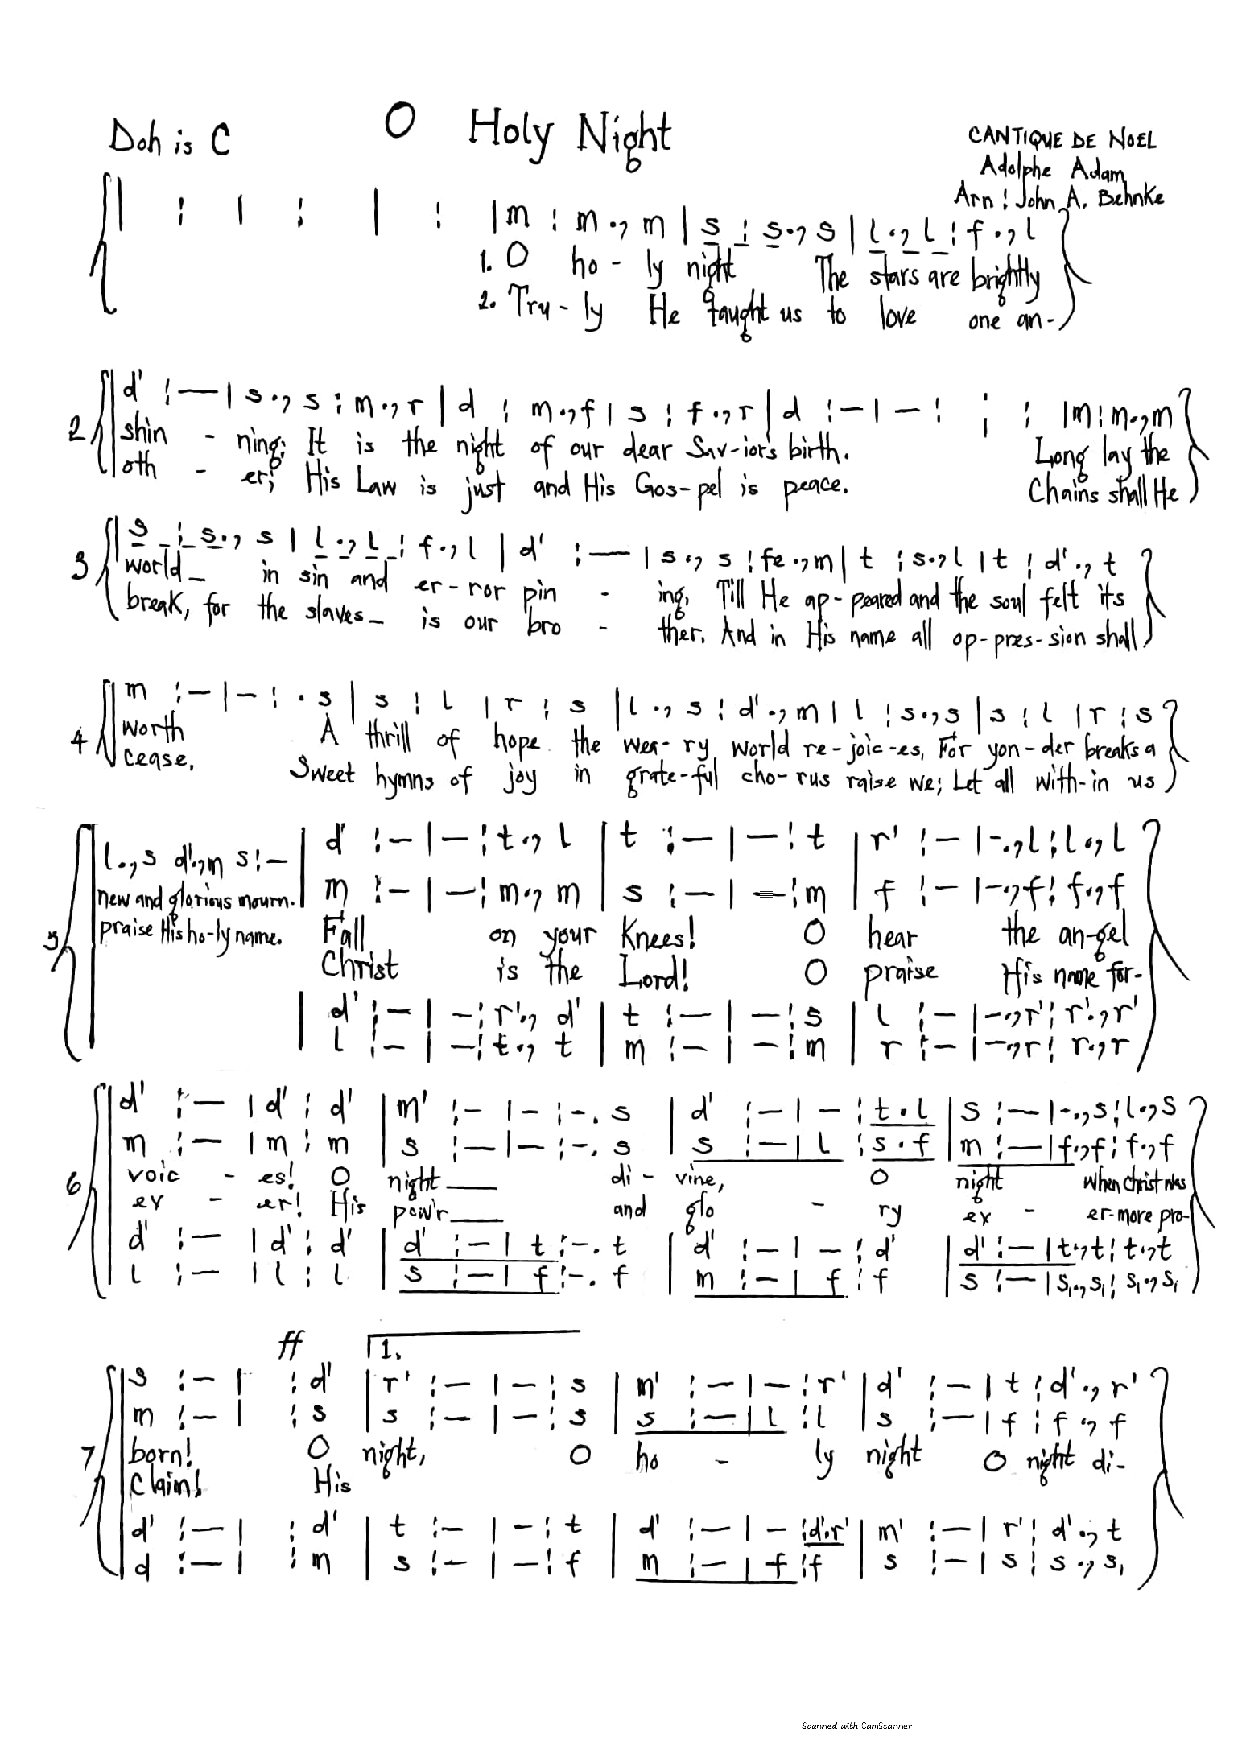 Doh is C
O Holy Night
CANTIQUE DE NOEL
Adolphe Adam
Arn : John A. Behnke
| : | : | : |m : m ., m | s : s ., s | l ., l : f ., l
1. O ho - ly night The stars are brightly
2. Tru - ly He taught us to love one an-
2 d' : — | s ., s : m ., r | d : m ., f | s : f ., r | d : — | — : : : |m : m ., m
shin - ning; It is the night of our dear Sav-ior's birth. Long lay the
oth - er; His Law is just and His Gos-pel is peace. Chains shall He
3 s : s ., s | l ., l : f ., l | d' : — | s ., s : fe ., m | t : s ., l | t : d' ., t
world _ in sin and er-ror pin - ing, Till He ap-peared and the soul felt its
break, for the slaves _ is our bro - ther. And in His name all op-pres-sion shall
4 m : — | — : . s | s : l | r : s | l ., s : d' ., m | l : s ., s | s : l | r : s
worth A thrill of hope the wea-ry world re-joic-es, For yon-der breaks a
cease. Sweet hymns of joy in grate-ful cho-rus raise we; Let all with-in us
5 l ., s d' ., m s : — | d' : — | — : t ., l | t : — | — : t | r' : — | — ., l : l ., l
| m : — | — : m ., m | s : — | — : m | f : — | — ., f : f ., f
new and glorious mourn. Fall on your Knees! O hear the an-gel
praise His ho-ly name. Christ is the Lord! O praise His name for-
| d' : — | — : r' ., d' | t : — | — : s | l : — | — ., r' : r' ., r'
l : — | — : t ., t | m : — | — : m | r : — | — ., r : r ., r
6 d' : — | d' : d' | m' : — | — : — . s | d' : — | — : t . l | s : — | — ., s : l ., s
m : — | m : m | s : — | — : — . s | s : — | l : s . f | m : — | f ., f : f ., f
voic - es! O night ___ di - vine, O night When christ was
ev - er! His pow'r ___ and glo - ry ev - er-more pro-
d' : — | d' : d' | d' : — | t : — . t | d' : — | — : d' | d' : — | t ., t : t ., t
l : — | l : l | s : — | f : — . f | m : — | f : f | s : — | s₁ ., s₁ : s₁ ., s₁
ff 1.
7 s : — | : d' | r' : — | — : s | m' : — | — : r' | d' : — | t : d' ., r'
m : — | : s | s : — | — : s | s : — | l : l | s : — | f : f ., f
born! O night, O ho - ly night O night di-
Claim! His
d' : — | : d' | t : — | — : t | d' : — | — : d' . r' | m' : — | r' : d' ., t
d : — | : m | s : — | — : f | m : — | f : f | s : — | s : s ., s₁
Scanned with CamScanner